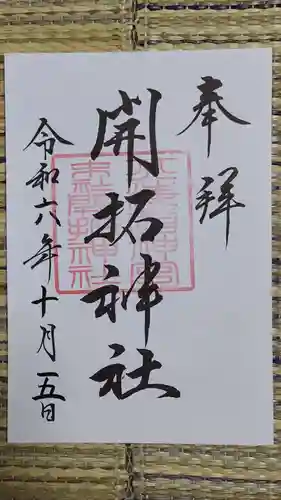 奉拝
開拓神社
令和六年十月五日